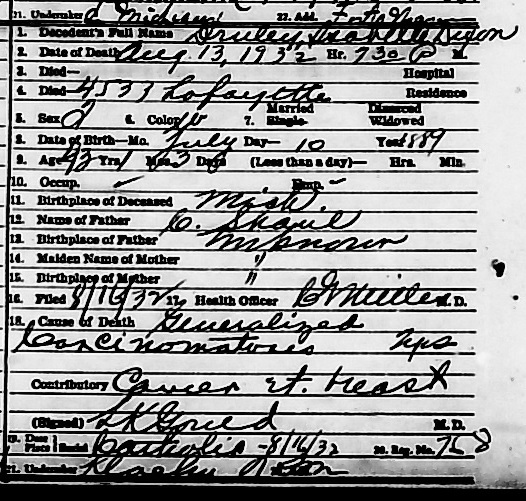 21. Undertaker 22. Add.
1. Decedent's Full Name Druley, Isabelle Dixon
2. Date of Death Aug. 13, 1932 Hr. 7 30 P M.
3. Died— Hospital
4. Died— 4533 Lafayette Residence
5. Sex 6. Color W 7. Married Single Divorced Widowed
8. Date of Birth—Mo. July Day— 10 Year 1889
9. Age 43 Yrs. 1 Mos. 3 Days (Less than a day)— Hrs. Min.
10. Occup. Emp.
11. Birthplace of Deceased Mich.
12. Name of Father C.
13. Birthplace of Father Unknown
14. Maiden Name of Mother "
15. Birthplace of Mother "
16. Filed 8/16/32 17. Health Officer M.D.
18. Cause of Death Generalized
Carcinomatosis
Contributory Cancer rt. breast
(Signed) M.D.
19. Date Place Burial Catholic -8/16/32 20. Reg. No. 758
21. Undertaker